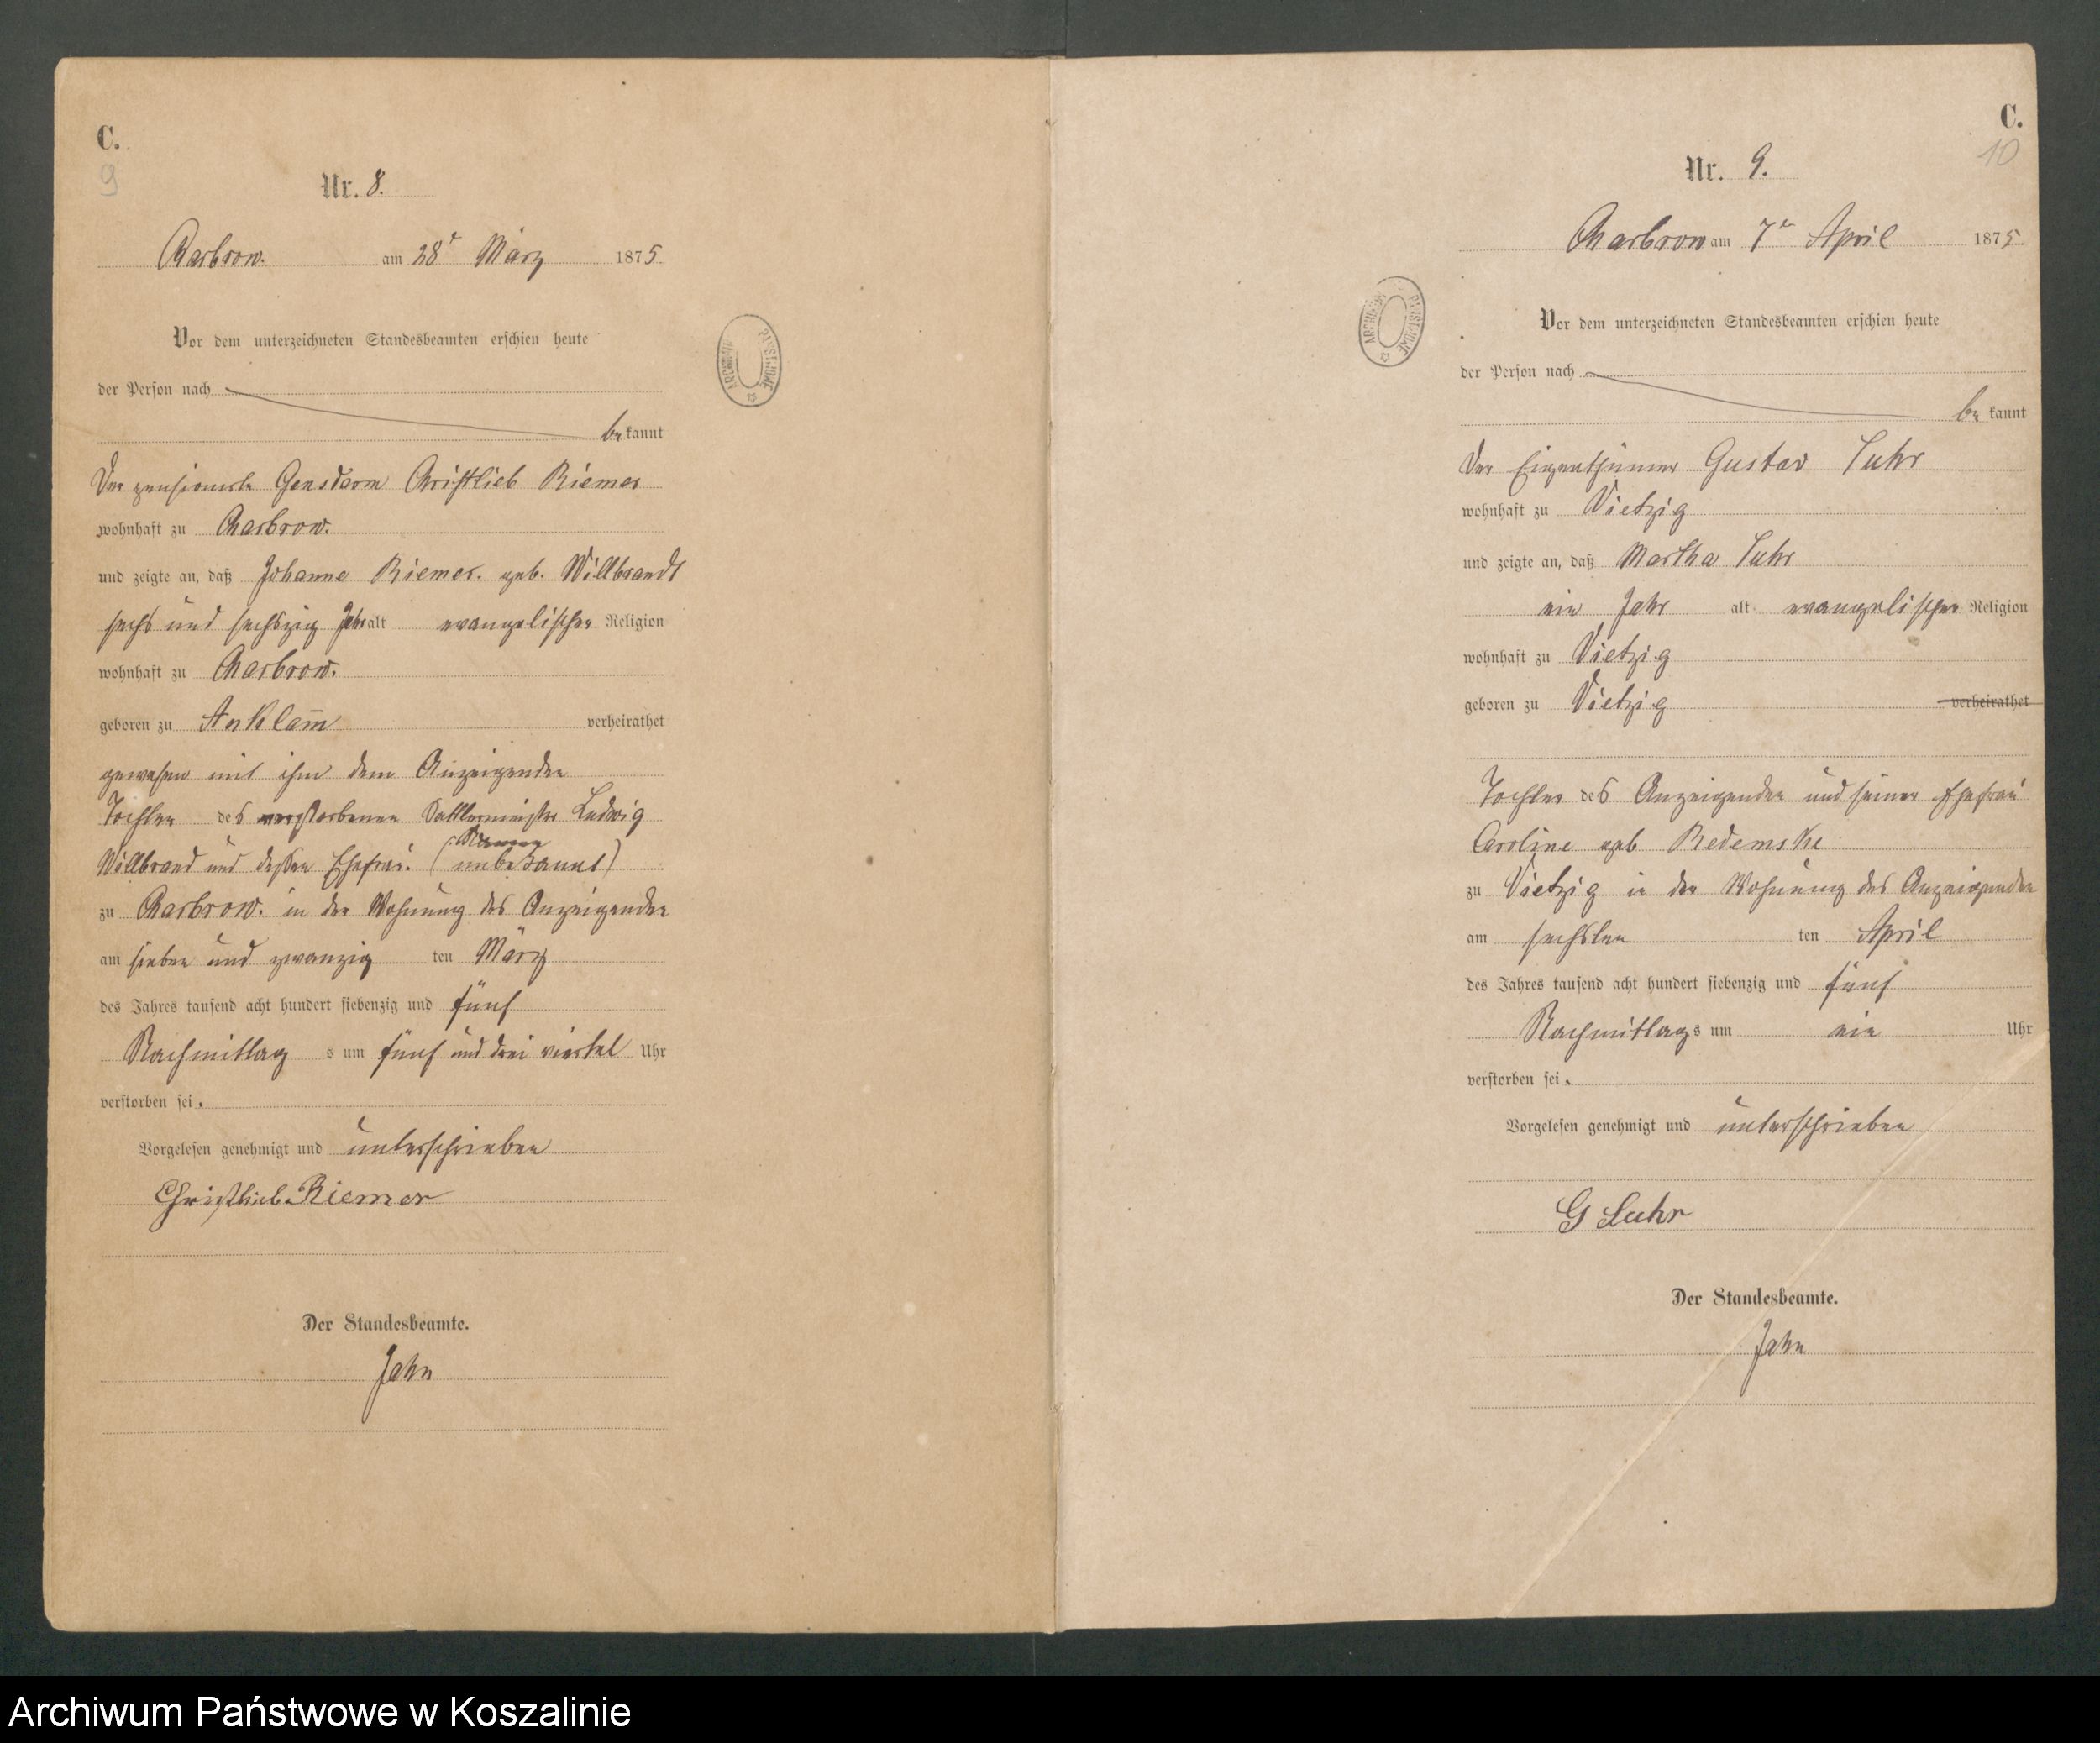 C.
9
Nr. 8.
Charbrow. am 28t März 1875
Vor dem unterzeichneten Standesbeamten erschien heute
der Person nach
bekannt
Der pensionirte Gensdarm Christlieb Riemer
wohnhaft zu Charbrow.
und zeigte an, daß Johanne Riemer. geb. Willbrandt
sechs und sechszig Jahr alt evangelischer Religion
wohnhaft zu Charbrow.
geboren zu Anklam̄ verheirathet
gewesen mit ihm dem Anzeigenden
Tochter des verstorbenen Sattlermeister Ludwig
Willbrand und dessen Ehefrau. (unbekannt)
zu Charbrow. in der Wohnung des Anzeigenden
am sieben und zwanzig ten März
des Jahres tausend acht hundert siebenzig und fünf
Nachmittag s um fünf und drei viertel Uhr
verstorben sei.
Vorgelesen genehmigt und unterschrieben
Christlieb Riemer
Der Standesbeamte.
Jahn
C.
10
Nr. 9.
Charbrow am 7t April 1875
Vor dem unterzeichneten Standesbeamten erschien heute
der Person nach
bekannt
Der Eigenthümer Gustav Suhr
wohnhaft zu Vietzig
und zeigte an, daß Martha Suhr
ein Jahr alt evangelischer Religion
wohnhaft zu Vietzig
geboren zu Vietzig verheirathet
Tochter des Anzeigenden und seiner Ehefrau
Caroline geb Redemske
zu Vietzig in der Wohnung des Anzeigenden
am sechsten ten April
des Jahres tausend acht hundert siebenzig und fünf
Nachmittags um ein Uhr
verstorben sei.
Vorgelesen genehmigt und unterschrieben
G Suhr
Der Standesbeamte.
Jahn
Archiwum Państwowe w Koszalinie